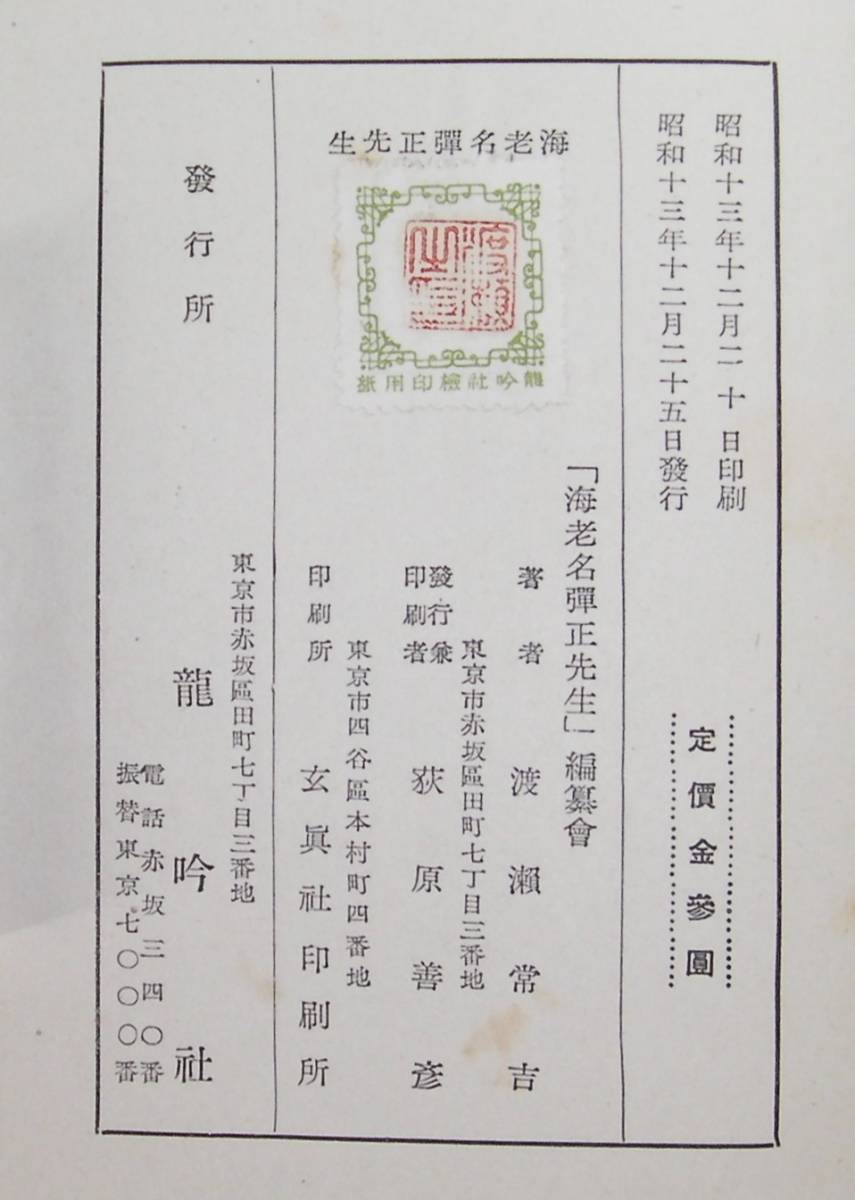 昭和十三年十二月二十日印刷
昭和十三年十二月二十五日發行
定價金參圓
海老名彈正先生
龍吟社檢印用紙
「海老名彈正先生」編纂會
著者 渡瀨常吉
東京市赤坂區田町七丁目三番地
發行兼印刷者 荻原善彥
東京市四谷區本村町四番地
印刷所 玄眞社印刷所
發行所
東京市赤坂區田町七丁目三番地
龍吟社
電話赤坂三四〇番
振替東京七〇〇〇番